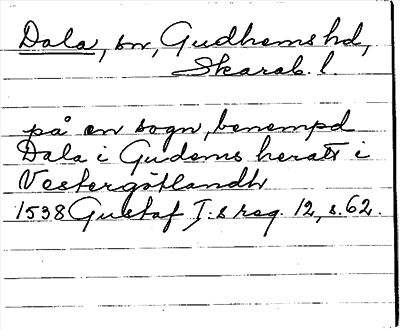 Dala, sn, Gudhems hd,
Skarab. l.
på en sogn, benempd
Dala i Gudems heratt i
Vestergötlandh
1538 Gustaf I:s reg. 12, s. 62.